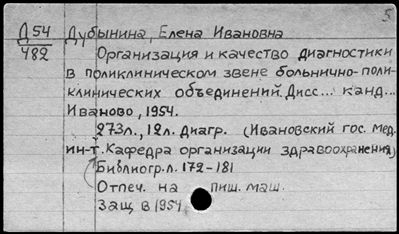 5
Д 54
482
Дубынина, Елена Ивановна
Организация и качество диагностики
в поликлиническом звене больнично-поли-
клинических объединений. Дисс... канд...
Иваново, 1954.
273 л., 12 л. диагр. (Ивановский гос. мед.
ин-т. Кафедра организации здравоохранения)
Библиогр. л. 172-181
Отпеч. на пиш. маш.
Защ в 1954